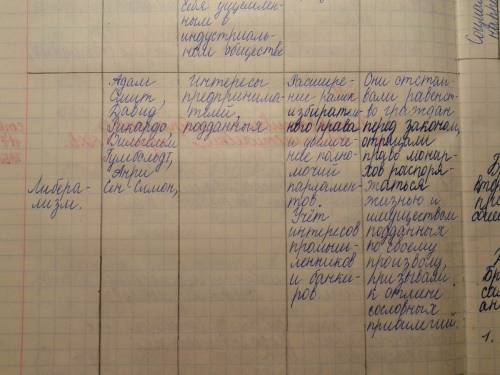 себя ущемлен-
ным в
индустриаль-
ном обществе
Либера-
лизм.
Адам
Смит,
Давид
Рикардо,
Вильгельм
Гумбольдт,
Анри
Сен Симон,
Интересы
предпринима-
тели,
подданных
Расшире-
ние рамок
избиратель-
ного права
и увеличе-
ние полно-
мочий
парламен-
тов.
Учёт
интересов
промыш-
ленников
и банки-
ров
Они отстаи-
вали равенст-
во граждан
перед законом,
отрицали
право монар-
хов распоря-
жаться
жизнью и
имуществом
подданных
по своему
произволу,
призывали
к отмене
сословных
привилегий.
1.